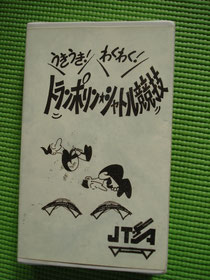 うきうき! わくわく!
トランポリン★シャトル競技
JTSA